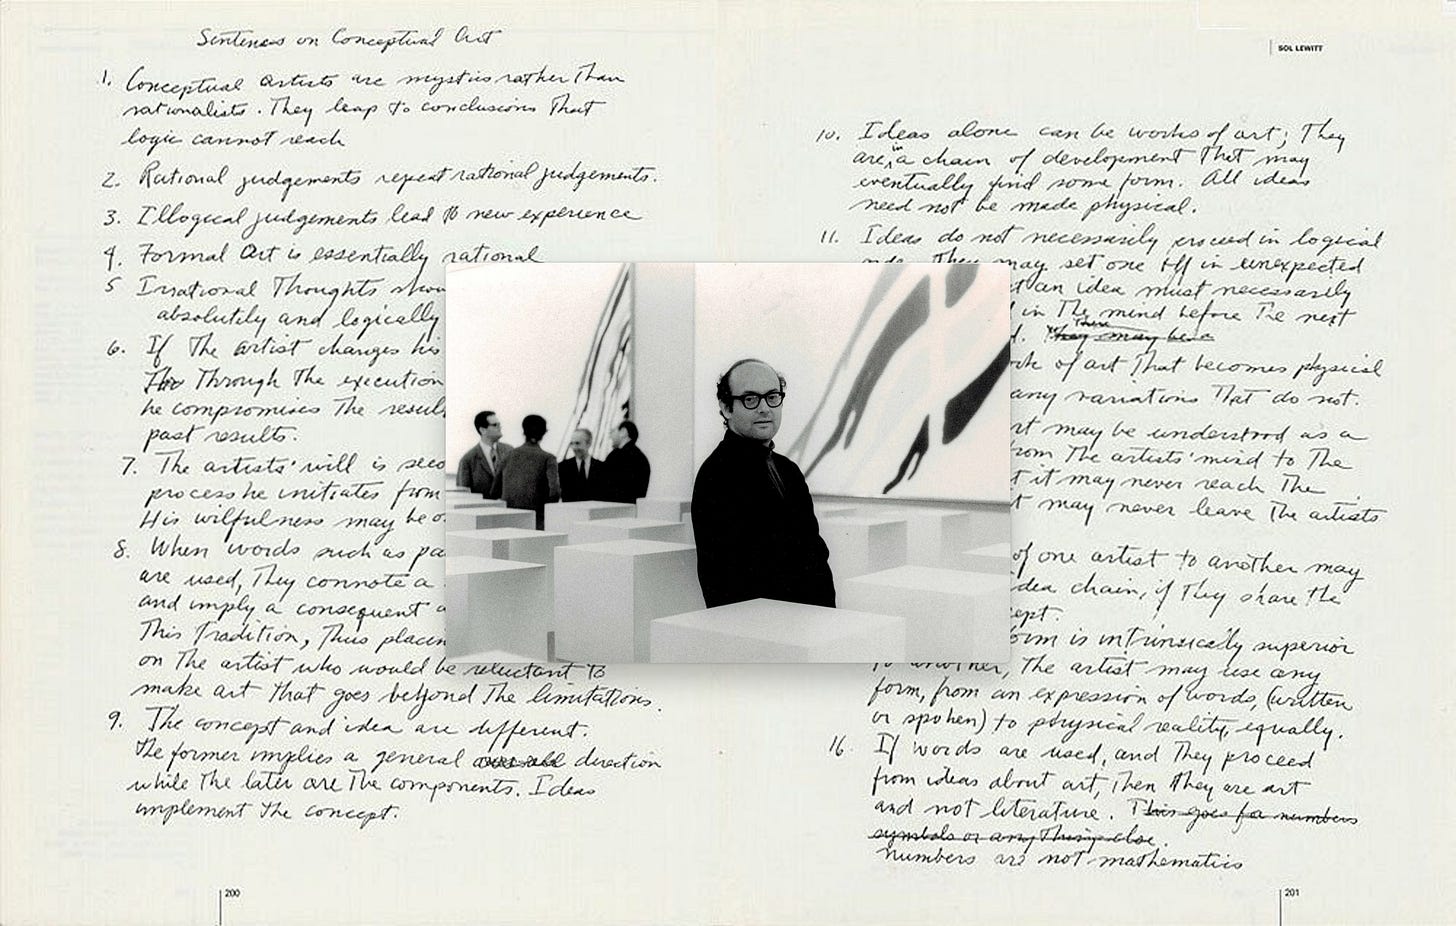 Sentences on Conceptual Art
1. Conceptual Artists are mystics rather than
rationalists. They leap to conclusions that
logic cannot reach
2. Rational judgements repeat rational judgements.
3. Illogical judgements lead to new experience
4. Formal Art is essentially rational
5 Irrational Thoughts
absolutely and logically
6. If the artist changes his
through the execution
he compromises the result
past results.
7. The artists' will is
process he initiates from
His wilfulness may be
8. When words such as
are used, they connote a
and imply a consequent
This tradition, thus
on the artist who would be reluctant to
make art that goes beyond the limitations.
9. The concept and idea are different.
The former implies a general direction
while the later are the components. Ideas
implement the concept.
200
SOL LEWITT
10. Ideas alone can be works of art; they
are in a chain of development that may
eventually find some form. All ideas
need not be made physical.
11. Ideas do not necessarily proceed in logical
They may set one off in unexpected
an idea must necessarily
in the mind before the next
There
They may be a
of art that becomes physical
any variations that do not.
may be understood as a
from the artists' mind to the
it may never reach the
may never leave the artists
of one artist to another may
idea chain, if they share the
form is intrinsically superior
to another, the artist may use any
form, from an expression of words, (written
or spoken) to physical reality, equally.
16. If words are used, and they proceed
from ideas about art, then they are art
and not literature. This goes for numbers
symbols or anything else.
numbers are not mathematics
201